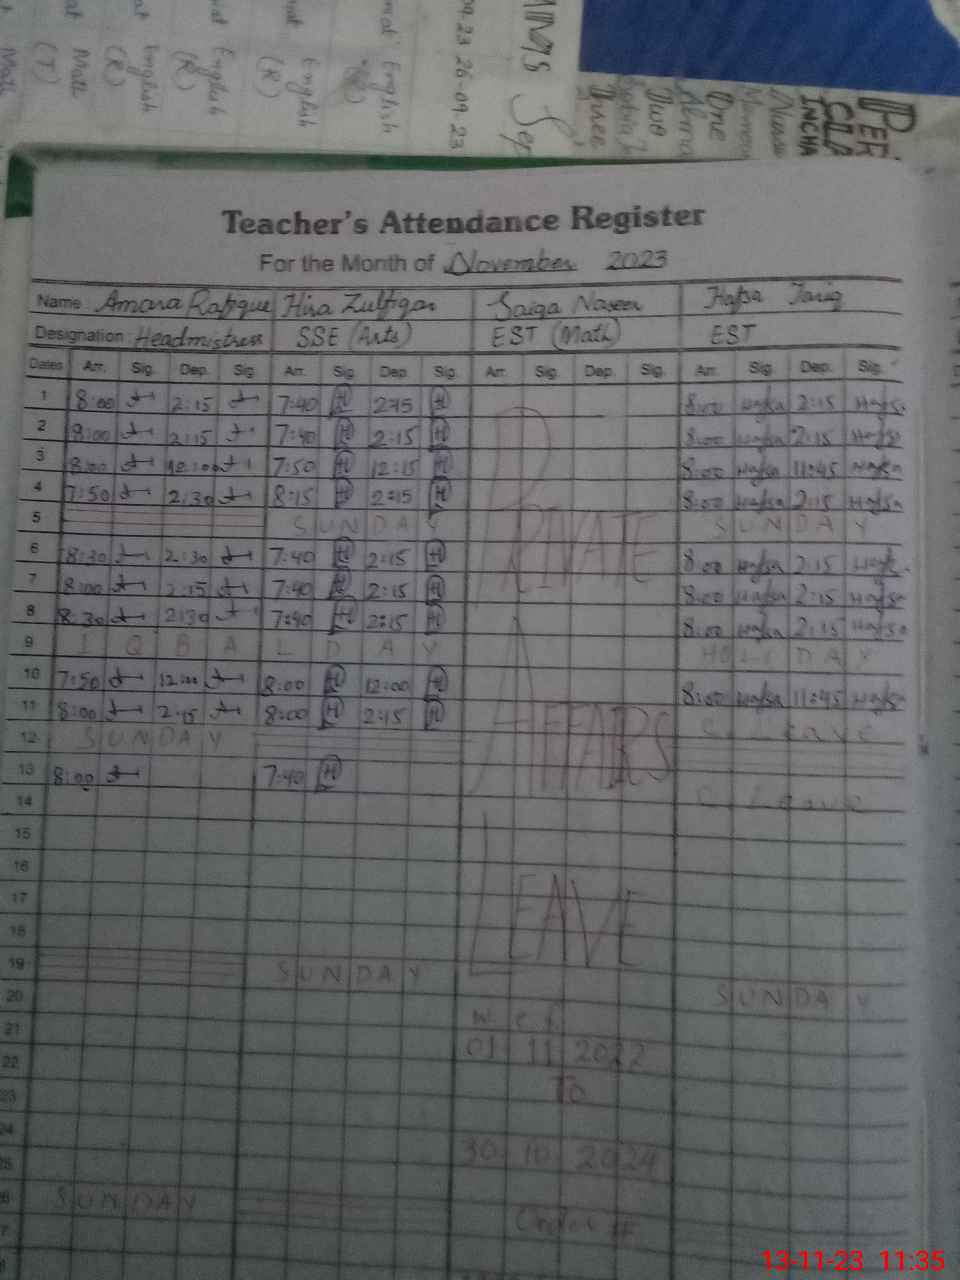 Teacher's Attendance Register
For the Month of November 2023
Name Amara Rafique Hira Zulfiqar Saiqa Naseer Hafsa Tariq
Designation Headmistress SSE (Arts) EST (Math) EST
Dates Arr. Sig. Dep. Sig. Arr. Sig. Dep. Sig. Arr. Sig. Dep. Sig. Arr. Sig. Dep. Sig.
1 8:00 2:15 7:40 H 2:15 H 8:00 Hafsa 2:15 Hafsa
2 8:00 2:15 7:40 H 2:15 H 8:00 Hafsa 2:15 Hafsa
3 8:00 12:00 7:50 H 12:15 H 8:00 Hafsa 11:45 Hafsa
4 7:50 2:30 8:15 H 2:15 H 8:00 Hafsa 2:15 Hafsa
5 SUNDAY SUNDAY
6 8:30 2:30 7:40 H 2:15 H 8:00 Hafsa 2:15 Hafsa
7 8:00 2:15 7:40 H 2:15 H 8:00 Hafsa 2:15 Hafsa
8 8:30 2:30 7:40 H 2:15 H 8:00 Hafsa 2:15 Hafsa
9 IQBAL DAY HOLIDAY
10 7:50 12:00 8:00 H 12:00 H 8:00 Hafsa 11:45 Hafsa
11 8:00 2:15 8:00 H 2:15 H C. Leave
12 SUNDAY
13 8:00 7:40 H C. Leave
14
15
16
17
18
19 SUNDAY SUNDAY
20
21
22
23
24
25
26 SUNDAY
27
PRIVATE
AFFAIRS
LEAVE
w.e.f.
01 11 2022
To
30 10 2024
Order #
English
(R)
English
(R)
English
(R)
English
(R)
Math
(T)
Math
26-09-23
Sep
PER
CLA
INCHA
One
Two
Three
13-11-23 11:35